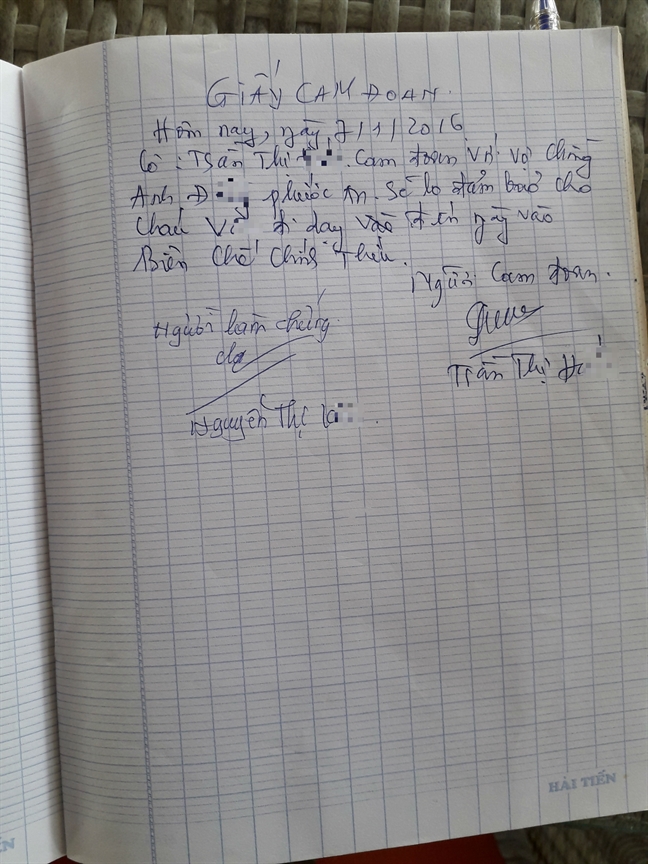 GIẤY CAM ĐOAN.
Hôm nay, ngày 7/1/2016
Cô: Trần Thị Cam đoan với vợ chồng
Anh Đ phước tn. Sẽ lo đảm bảo cho
cháu Vi đi dạy vào đến ngày vào
Biên chế chính thức.
Người cam đoan.
Người làm chứng
Trần Thị H
Nguyễn Thị
HẢI TIẾN